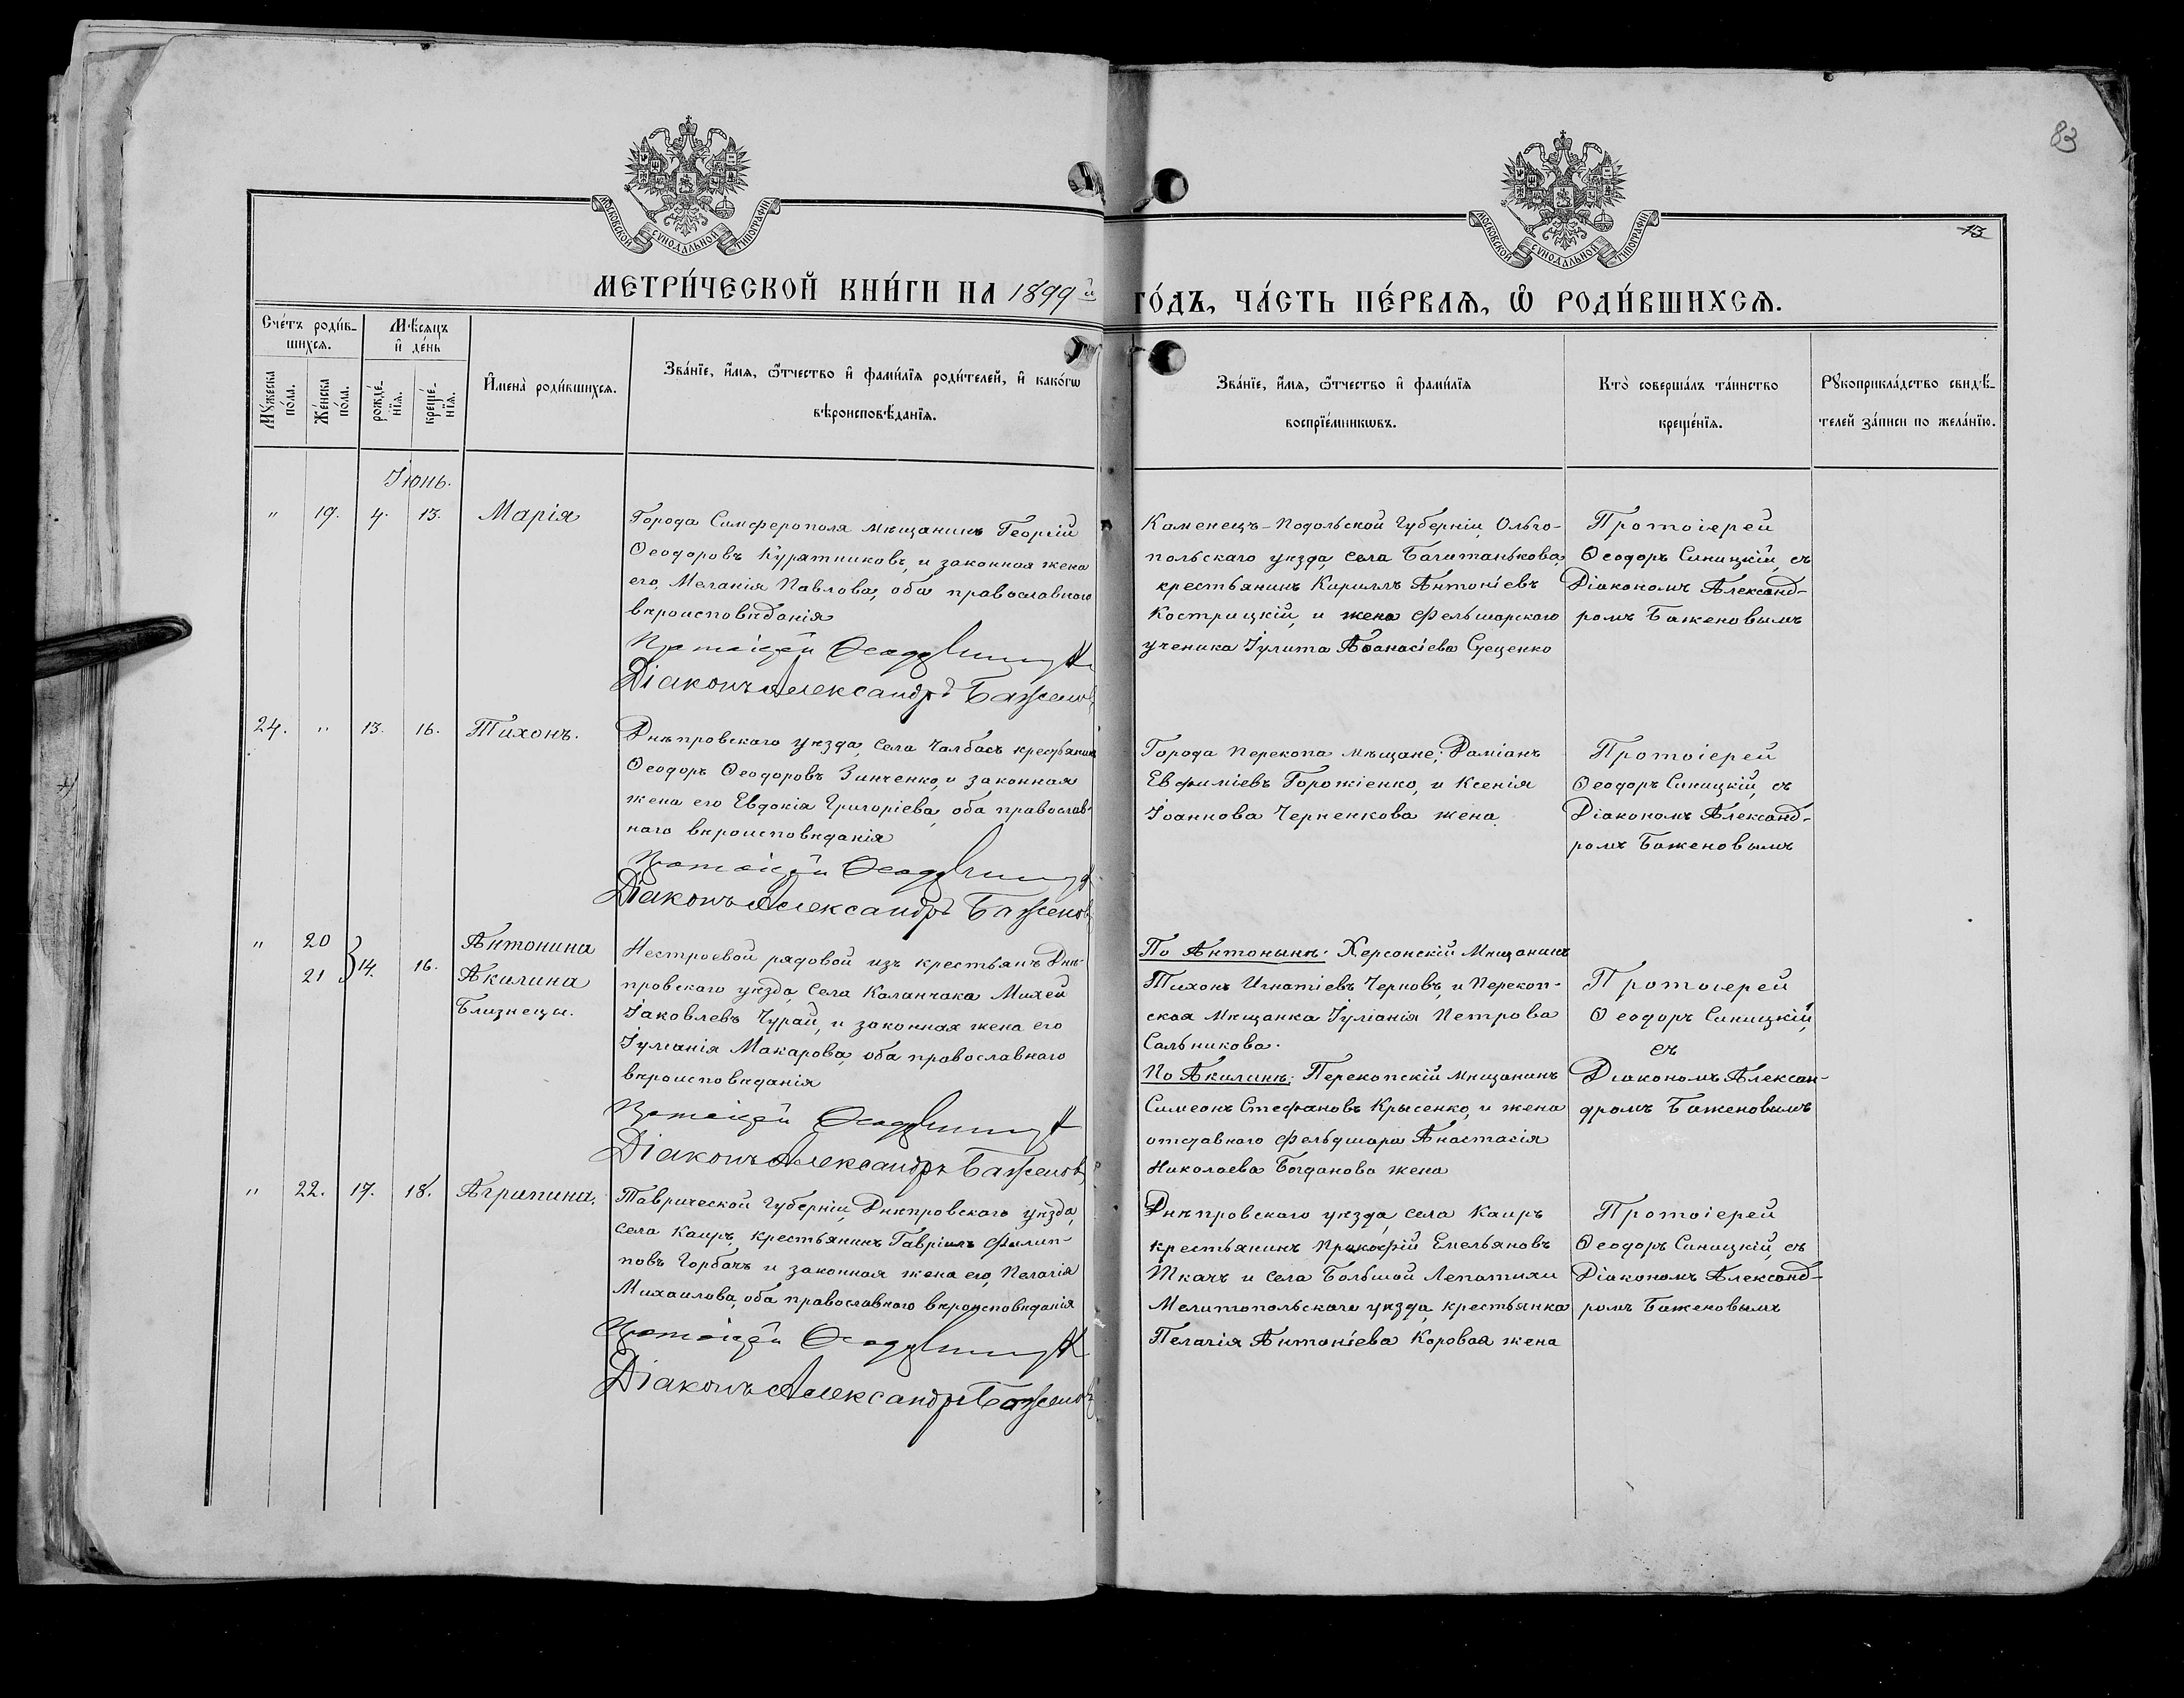 83
МОСКОВСКОЙ СѴНОДАЛЬНОЙ ТИПОГРАФІИ
МОСКОВСКОЙ СѴНОДАЛЬНОЙ ТИПОГРАФІИ
13
МЕТРИ́ЧЕСКОЙ КНИ́ГИ НА 1899 й
ГО́ДЪ, ЧА́СТЬ ПЕ́РВАѦ, Ѡ҆ РОДИ́ВШИХСѦ.
Сче́тъ роди́в-
шихсѧ.
Мѣ́сѧцъ
и҆ де́нь
Мꙋ́жеска
по́ла.
Же́нска
по́ла.
рожде́-
нїѧ.
креще́-
нїѧ.
И҆мена̀ роди́вшихсѧ.
Зва́нїе, и҆́мѧ, ѻ҆́тчество и҆ фами́лїѧ роди́телей, и҆ како́гѡ
вѣроисповѣ́данїѧ.
Зва́нїе, и҆́мѧ, ѻ҆́тчество и҆ фами́лїѧ
воспрїе́мникѡвъ.
Кто̀ соверша́лъ та́инство
креще́нїѧ.
Рꙋкоприкла́дство свидѣ́-
телей за́писи по жела́нїю.
Іюнь.
" 19. 4. 13. Марія
Города Симферополя мѣщанинъ Георгій
Ѳеодоровъ Курятниковъ, и законная жена
его, Меланія Павлова, оба православнаго
вѣроисповѣданія
Протоіерей Ѳеодоръ Синицкій
Діаконъ Александръ Баженовъ
Каменецъ-Подольской Губерніи, Ольго-
польскаго уѣзда, села Багитанькова,
крестьянинъ Кириллъ Антоніевъ
Кострицкій, и жена Фельшарскаго
ученика Іулита Аѳанасіева Сущенко
Протоіерей
Ѳеодоръ Синицкій, съ
Діакономъ Александ-
ромъ Баженовымъ
24. " 13. 16. Тихонъ.
Днѣпровскаго уѣзда, села Чалбасъ крестьянинъ
Ѳеодоръ Ѳеодоровъ Зинченко, и законная
жена его Евдокія Григоріева, оба православ-
наго вѣроисповѣданія
Протоіерей Ѳеодоръ Синицкій
Діаконъ Александръ Баженовъ
Города Перекопа мѣщане; Даміанъ
Евфиміевъ Горожіенко, и Ксенія
Іоаннова Черненкова жена.
Протоіерей
Ѳеодоръ Синицкій, съ
Діакономъ Александ-
ромъ Баженовымъ
" 20 Антонина
21 14. 16. Акилина
Близнецы.
Нестроевой рядовой изъ крестьянъ Днѣ-
провскаго уѣзда, села Каланчака Михей
Іаковлевъ Чурай, и законная жена его
Іуліанія Макарова, оба православнаго
вѣроисповѣданія
Протоіерей Ѳеодоръ Синицкій
Діаконъ Александръ Баженовъ
По Антонинѣ: Херсонскій Мѣщанинъ
Тихонъ Игнатіевъ Черновъ, и Перекоп-
ская Мѣщанка Іуліанія Петрова
Сальникова.
По Акилинѣ: Перекопскій Мѣщанинъ
Симеонъ Стефановъ Крысенко, и жена
отставного Фельдшара Анастасія
Николаева Богданова жена
Протоіерей
Ѳеодоръ Синицкій,
съ
Діакономъ Алексан-
дромъ Баженовымъ
" 22. 17. 18. Агрипина.
Таврической Губерніи, Днѣпровскаго уѣзда,
села Каиръ, крестьянинъ Гавріилъ Филип-
повъ Горбачъ и законная жена его, Пелагія
Михаилова, оба православнаго вѣроисповѣданія
Протоіерей Ѳеодоръ Синицкій
Діаконъ Александръ Баженовъ
Днѣпровскаго уѣзда, села Каиръ
крестьянинъ Прокофій Емельяновъ
Ткачъ и села Большой Лепатихи
Мелитопольскаго уѣзда, крестьянка
Пелагія Антоніева Коровая жена
Протоіерей
Ѳеодоръ Синицкій, съ
Діакономъ Александ-
ромъ Баженовымъ